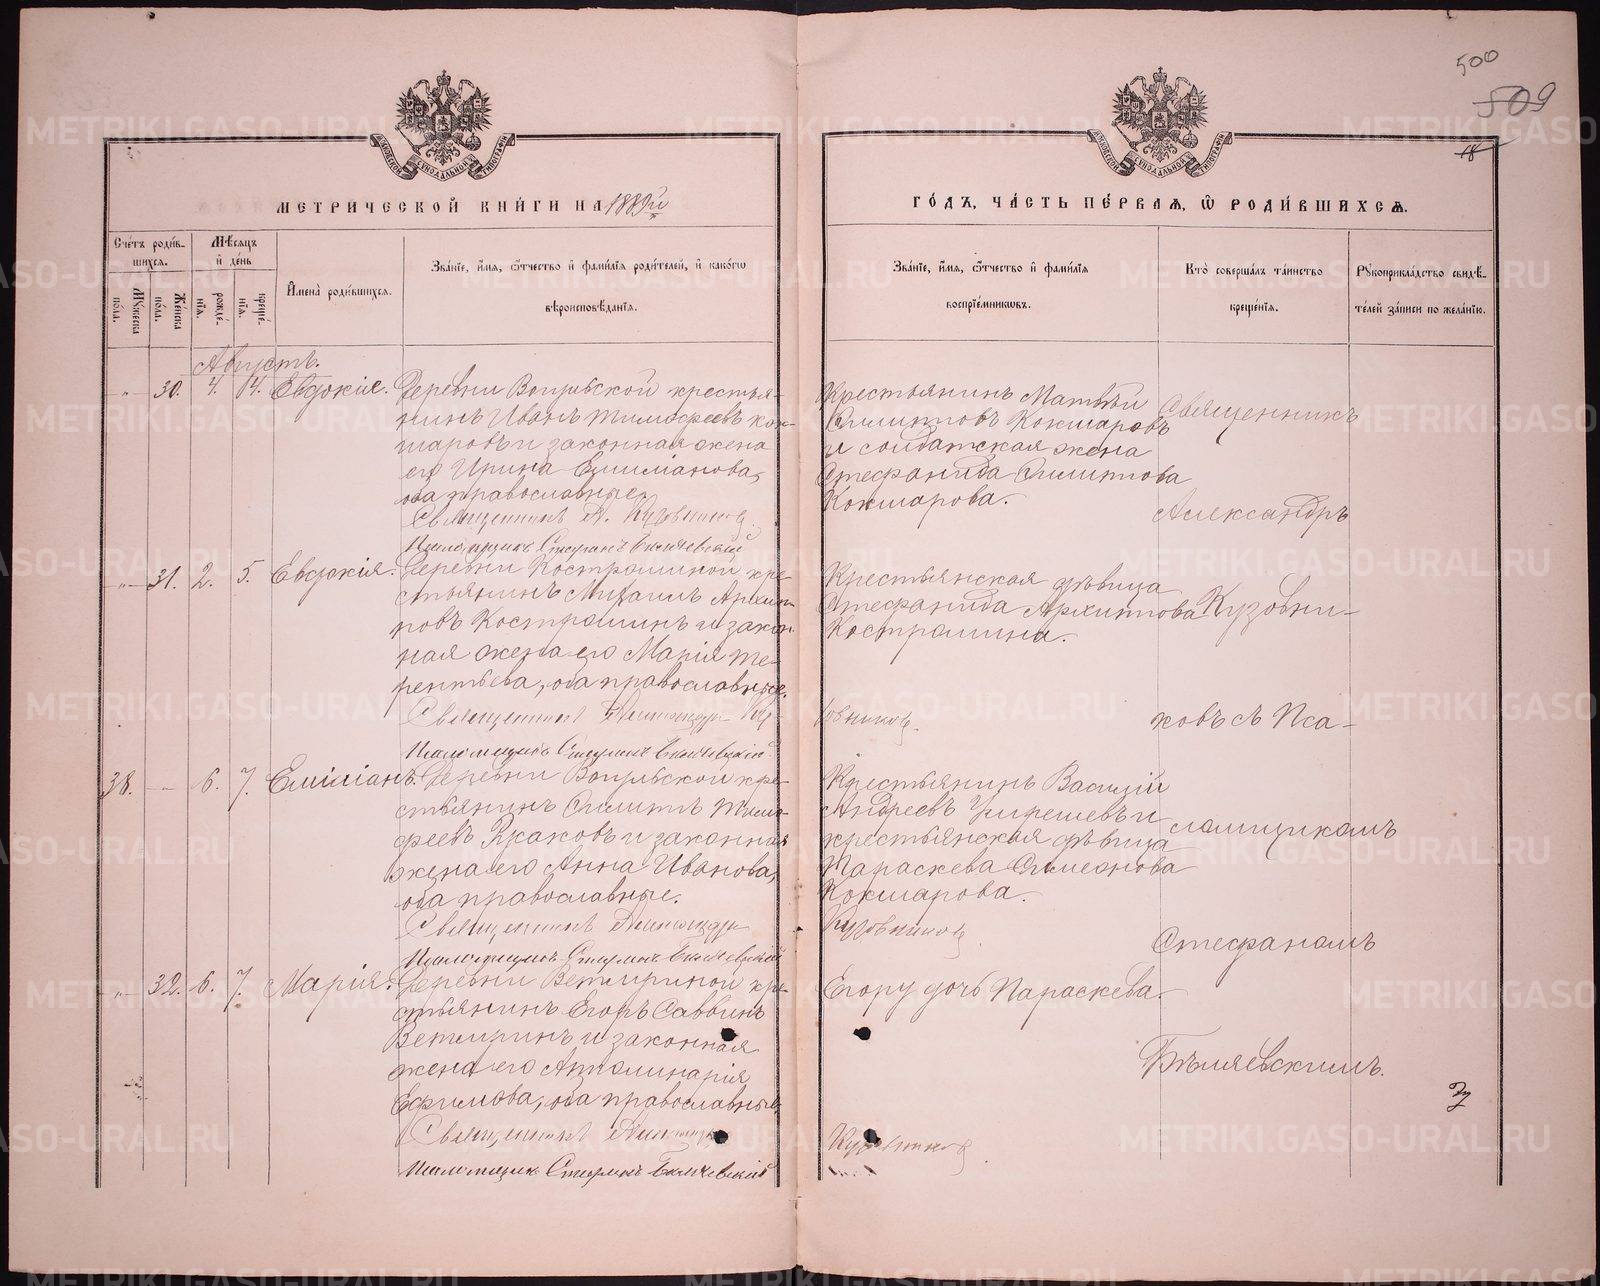 500
509
18
МЕТРИЧЕСКОЙ КНИ́ГИ НА 1889й
ГО́ДЪ, ЧА́СТЬ ПЕ́РВАѦ, Ѽ РОДИ́ВШИХСѦ.
Сче́тъ роди́в-
шихся.
Мѣ́сяцъ
и де́нь
Му́жеска по́ла.
Же́нска по́ла.
рожде́-нїя.
креще́-нїя.
И҆мена̀ роди́вшихся.
Зва́нїе, и҆́мя, ѻ҆́тчество и҆ фами́лїя роди́телей, и҆ како́гѡ
вѣроисповѣ́данїя.
Зва́нїе, и҆́мя, ѻ҆́тчество и҆ фами́лїя
воспрїе́мникѡвъ.
Кто̀ соверша́лъ та́инство
креще́нїя.
Рꙋкоприкла́дство свидѣ́-
телей за́писи по жела́нїю.
Августъ.
" 30. 4. 14. Евдокія. Деревни
крестья-
нинъ Иванъ Тимофеевъ Кок-
шаровъ и законная жена
его Ирина Емиліанова,
оба православные.
Священникъ А. Кузовников
Псаломщикъ Стефанъ Бѣляевскій
Крестьянинъ Матвѣй
Филипповъ Кокшаровъ
и солдатская жена
Стефанида Филиппова
Кокшарова.
Священникъ
Александръ
" 31. 2. 5. Евдокія. Деревни Костроминой кре-
стьянинъ Михаилъ Архип-
повъ Костроминъ и закон-
ная жена его Марія Те-
рентьева, оба православные.
Священникъ Александръ Куз
овников
Псаломщикъ Стефанъ Бѣляевскій
Крестьянская дѣвица
Стефанида Архиппова
Костромина.
Кузовни-
ковъ съ Пса-
38. — 6. 7. Емиліанъ. Деревни
кре-
стьянинъ Филиппъ Тимо-
феевъ
и законная
жена его Анна Иванова,
оба православные.
Священникъ Александръ
Кузовников
Псаломщикъ Стефанъ Бѣляевскій
Крестьянинъ Василій
Андреевъ
и
крестьянская дѣвица
Параскева Симеонова
Кокшарова.
ломщикомъ
Стефаномъ
" 32. 6. 7. Марія. Деревни
кре-
стьянинъ Егоръ Саввинъ
и законная
жена его Апполинарія
Ефимова, оба православные.
Священникъ Александръ
Кузовников
Псаломщикъ Стефанъ Бѣляевскій
Егору дочь Параскева.
Бѣляевскимъ.